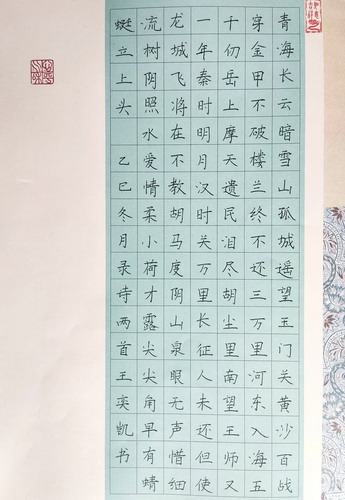 青海长云暗雪山孤城遥望玉门关黄沙百战
穿金甲不破楼兰终不还三万里河东入海五
千仞岳上摩天遗民泪尽胡尘里南望王师又
一年秦时明月汉时关万里长征人未还但使
龙城飞将在不教胡马度阴山泉眼无声惜细
流树阴照水爱情柔小荷才露尖尖角早有蜻
蜓立上头 乙巳冬月录诗两首王奕凯书